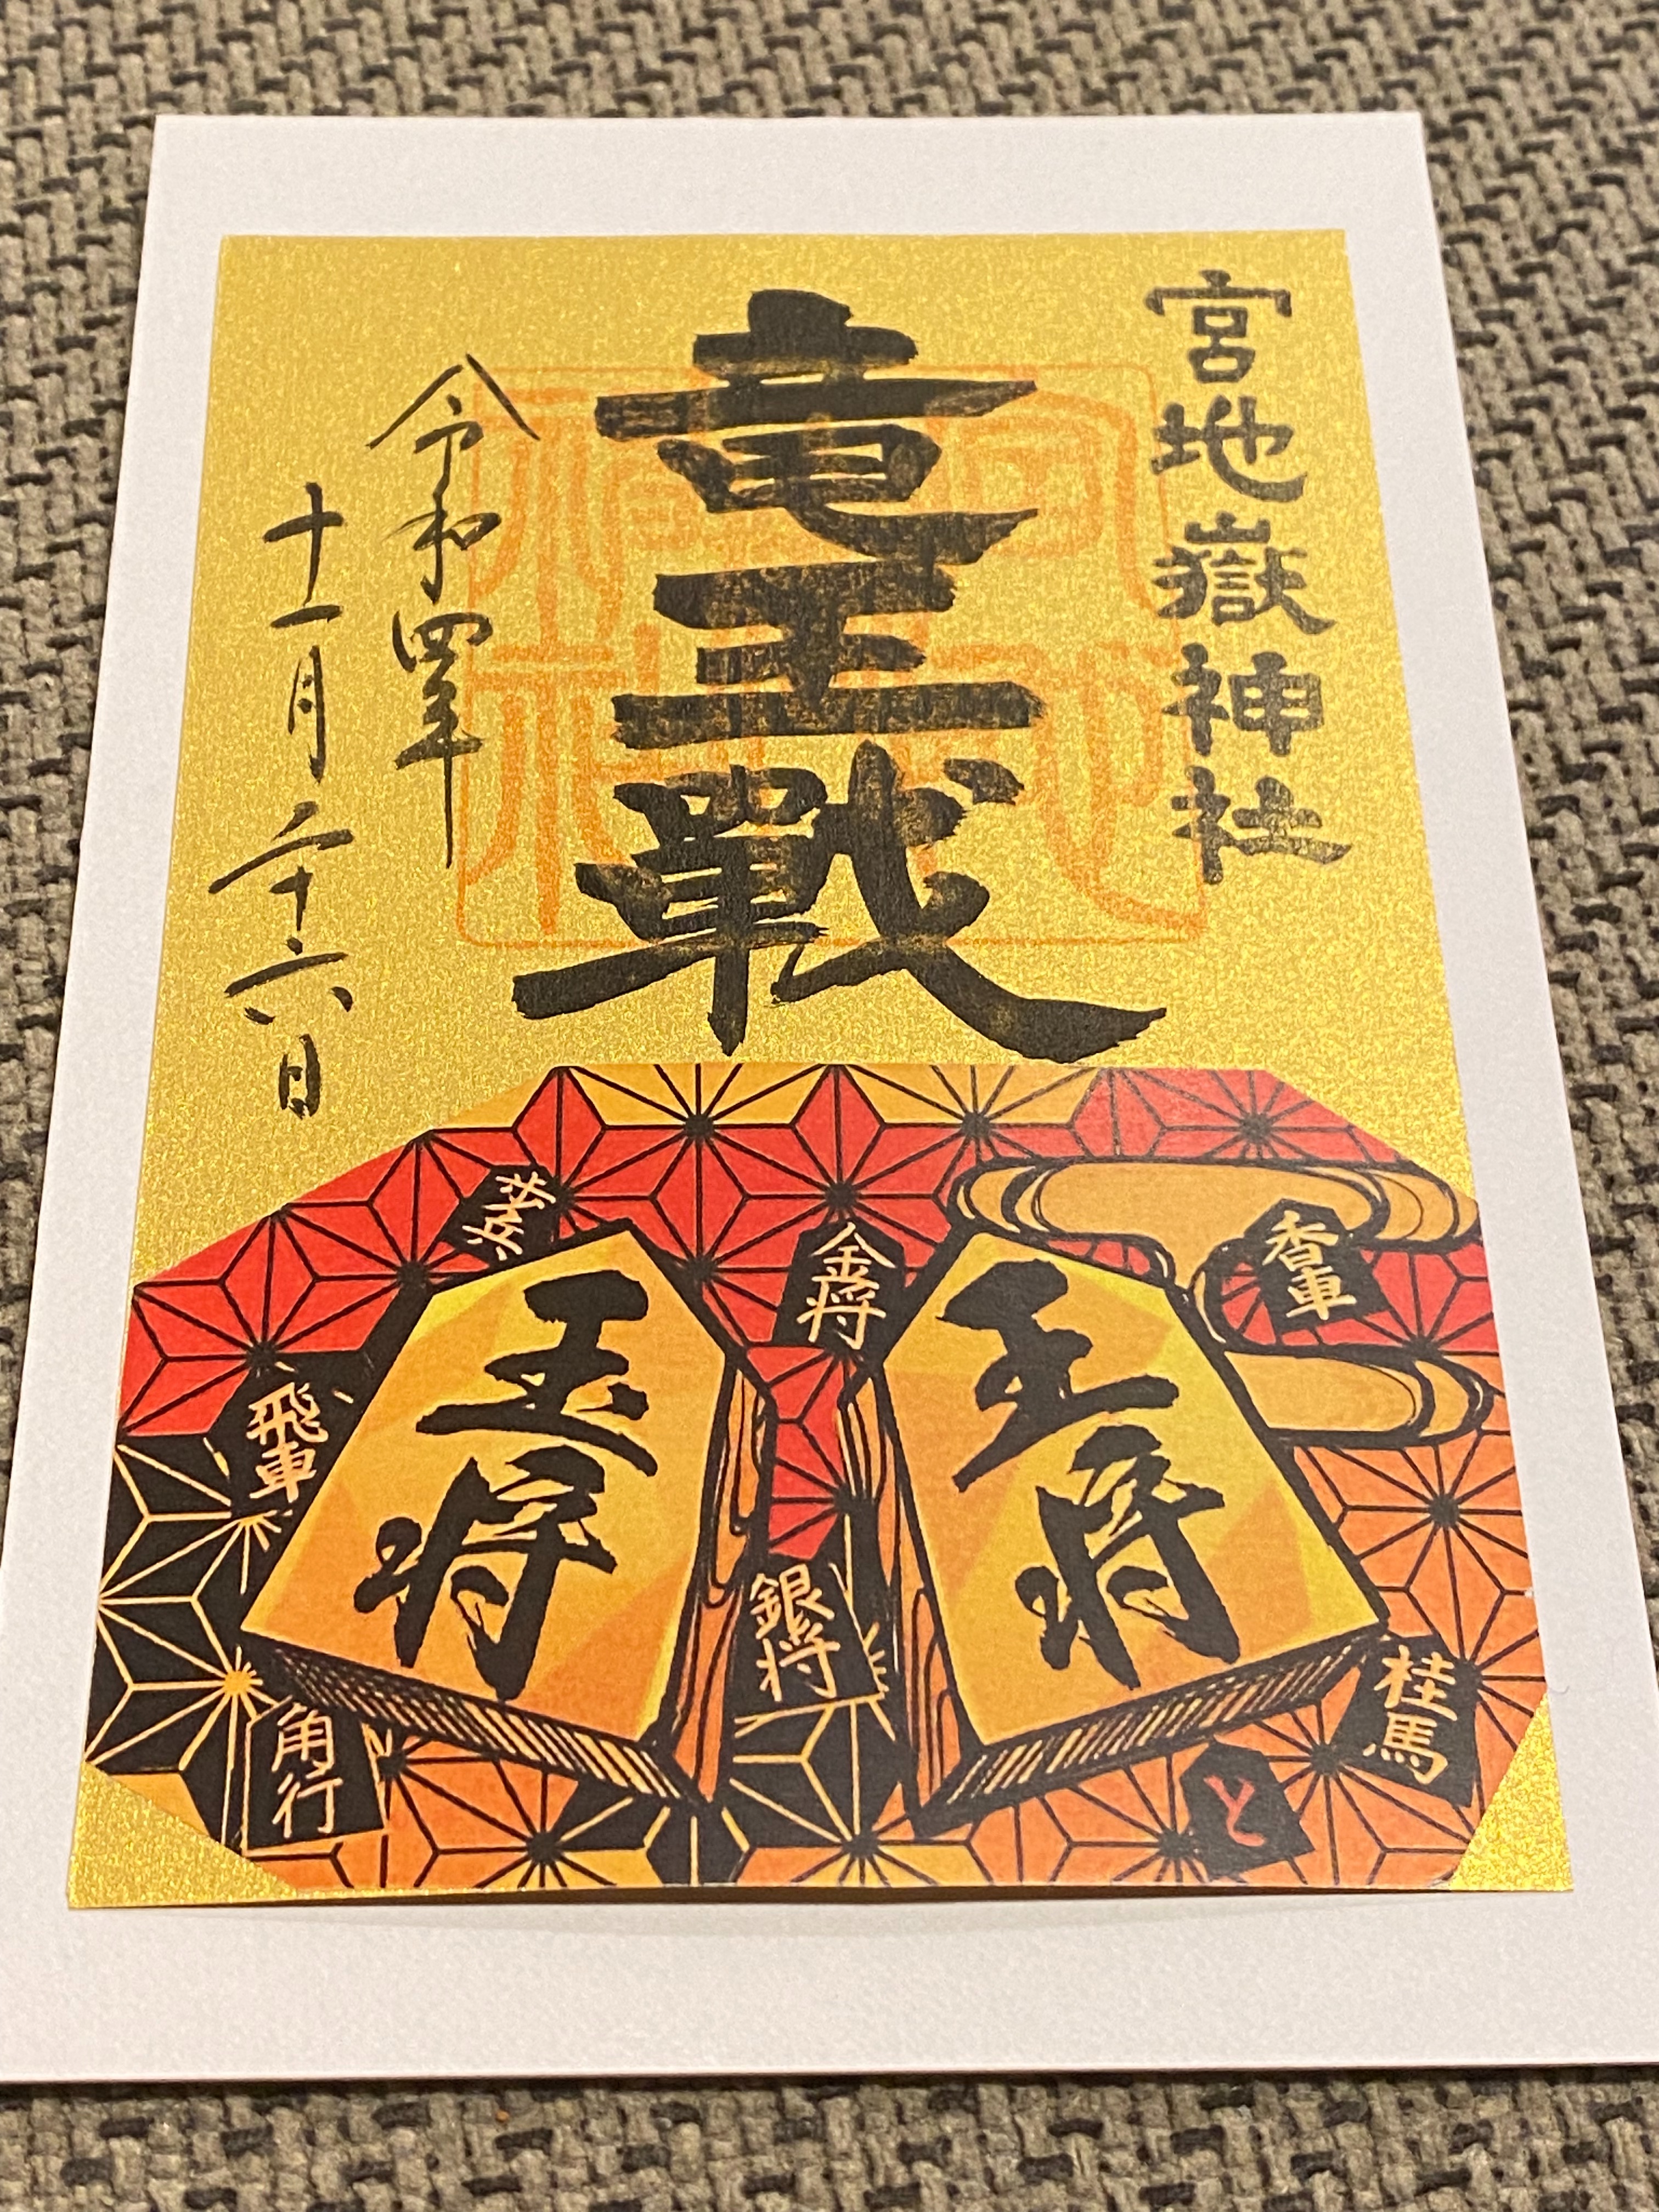 宮地嶽神社
竜王戰
令和四年
十一月二十六日
歩兵
金将
香車
玉将
王将
飛車
銀将
桂馬
角行
と